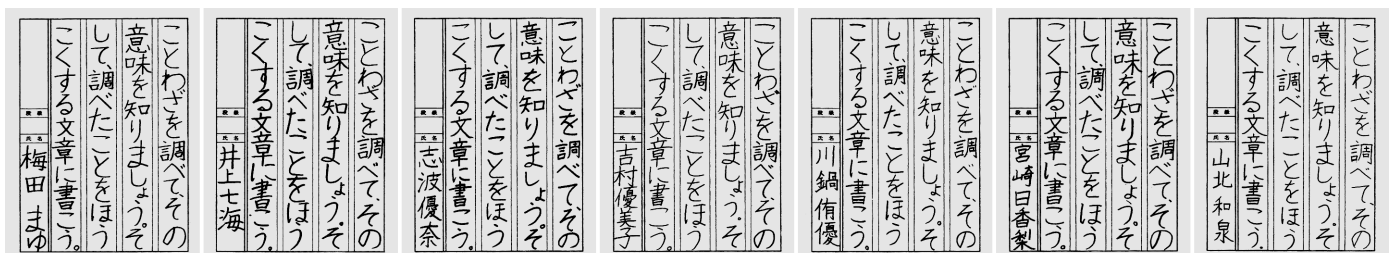 ことわざを調べて、その
意味を知りましょう。そ
して、調べたことをほう
こくする文章に書こう。
段級
氏名
梅田まゆ
ことわざを調べて、その
意味を知りましょう。そ
して、調べたことをほう
こくする文章に書こう。
段級
氏名
井上七海
ことわざを調べて、その
意味を知りましょう。そ
して、調べたことをほう
こくする文章に書こう。
段級
氏名
志波優奈
ことわざを調べて、その
意味を知りましょう。そ
して、調べたことをほう
こくする文章に書こう。
段級
氏名
吉村優美子
ことわざを調べて、その
意味を知りましょう。そ
して、調べたことをほう
こくする文章に書こう。
段級
氏名
川鍋侑優
ことわざを調べて、その
意味を知りましょう。そ
して、調べたことをほう
こくする文章に書こう。
段級
氏名
宮崎日香梨
ことわざを調べて、その
意味を知りましょう。そ
して、調べたことをほう
こくする文章に書こう。
段級
氏名
山北和泉